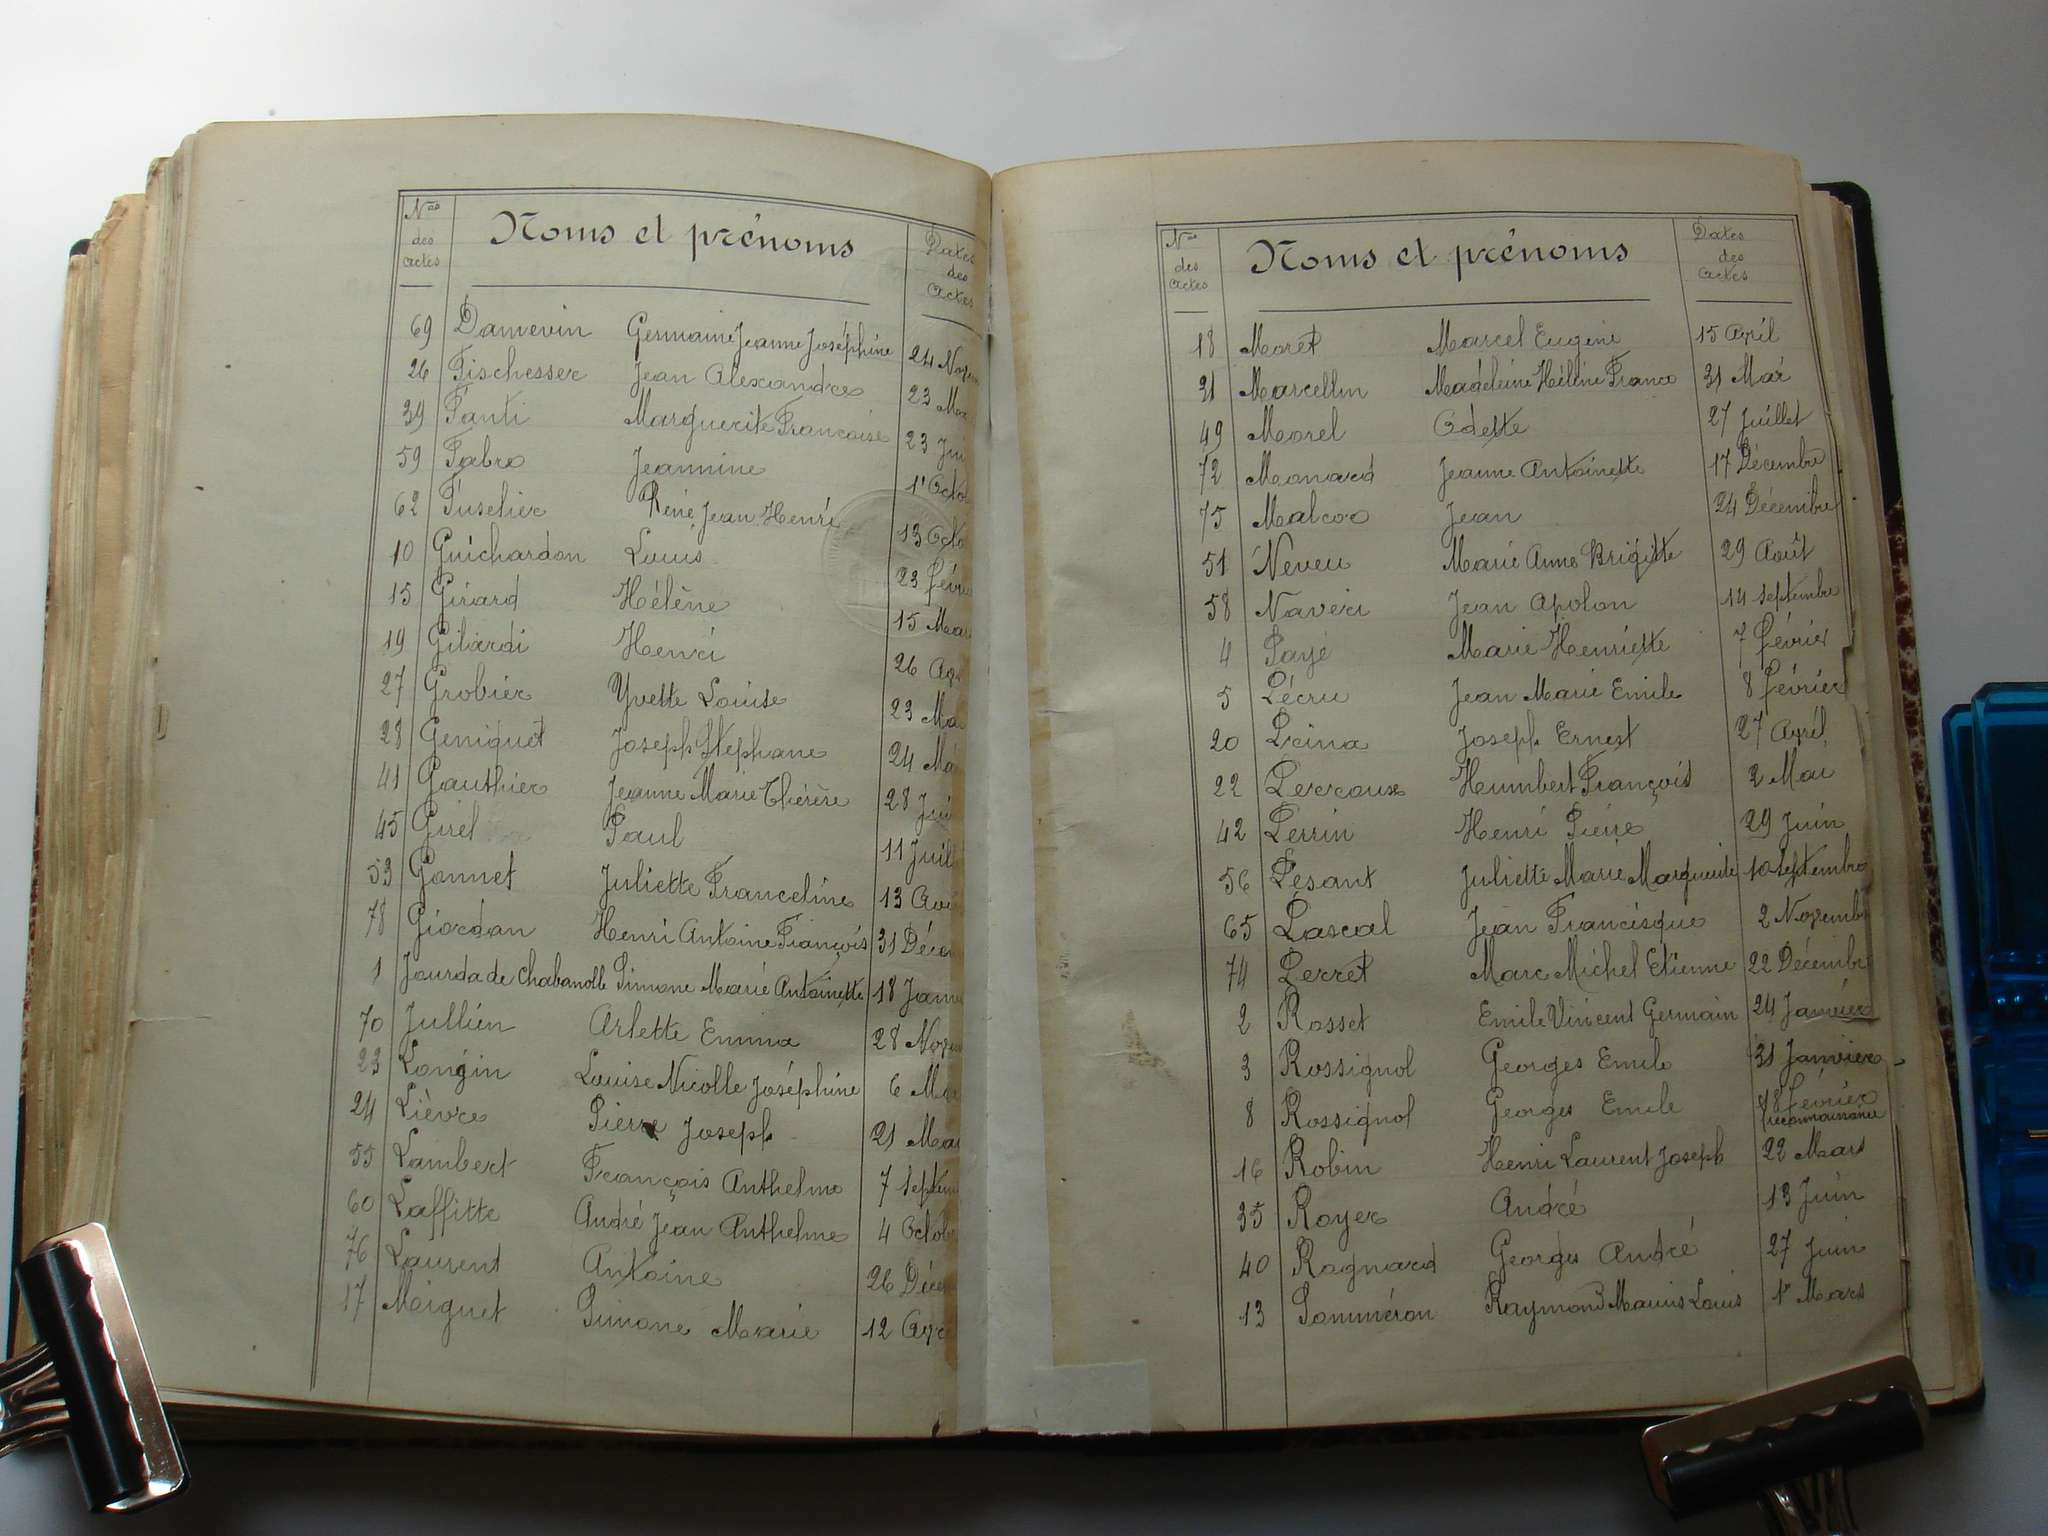 Nos des actes Noms et prénoms Dates des Actes
69 Damevin Germaine Jeanne Joséphine 24 Novem
26 Fischesser Jean Alexandre 23 Mai
39 Fanti Marguerite Françoise 23 Jui
59 Fabre Jeannine 1r Octob
62 Fuselier René Jean Henri 13 Octo
10 Guichardon Louis 23 févrie
15 Girard Hélène 15 Mar
19 Gilardi Henri 26 Avr
27 Grobier Yvette Louise 23 Ma
28 Geniquet Joseph Stephane 24 Ma
41 Gauthier Jeanne Marie Thérèse 28 Jui
45 Girel Paul 11 Juil
53 Gonnet Juliette Franceline 13 Aoû
78 Giordan Henri Antoine François 31 Décem
1 Jourda de Chabanolle Simone Marie Antoinette 18 Janv
70 Jullien Arlette Emma 28 Novem
23 Longin Louise Nicolle Joséphine 6 Ma
24 Lièvre Pierre Joseph 21 Mai
55 Lambert François Anthelme 7 septem
60 Laffitte André Jean Anthelme 4 Octob
76 Laurent Antoine 26 Décem
17 Moiguet Simone Marie 12 Avr
Nos des actes Noms et prénoms Dates des Actes
18 Moret Marcel Eugène 15 Avril
21 Marcellin Madeleine Hélène France 31 Mar
49 Morel Odette 27 Juillet
72 Monard Jeanne Antoinette 17 Décembre
75 Malcoo Jean 24 Décembre
51 Neveu Marie Anne Brigitte 29 Août
58 Naveri Jean Apolon 14 septembre
4 Payé Marie Henriette 7 février
5 Pécru Jean Marie Emile 8 février
20 Preina Joseph Ernest 27 Avril
22 Perroux Humbert François 2 Mai
42 Perrin Henri Pierre 29 Juin
56 Pesant Juliette Marie Marguerite 10 septembre
65 Pascal Jean Francisque 2 Novembr
74 Perret Marc Michel Etienne 22 Décembre
2 Rosset Emile Vincent Germain 24 Janvier
3 Rossignol Georges Emile 31 Janvier
8 Rossignol Georges Emile 18 février
reconnaissance
16 Robin Henri Laurent Joseph 22 Mars
35 Royer André 13 Juin
40 Rognard Georges André 27 Juin
13 Sommeron Raymond Marius Louis 1r Mars